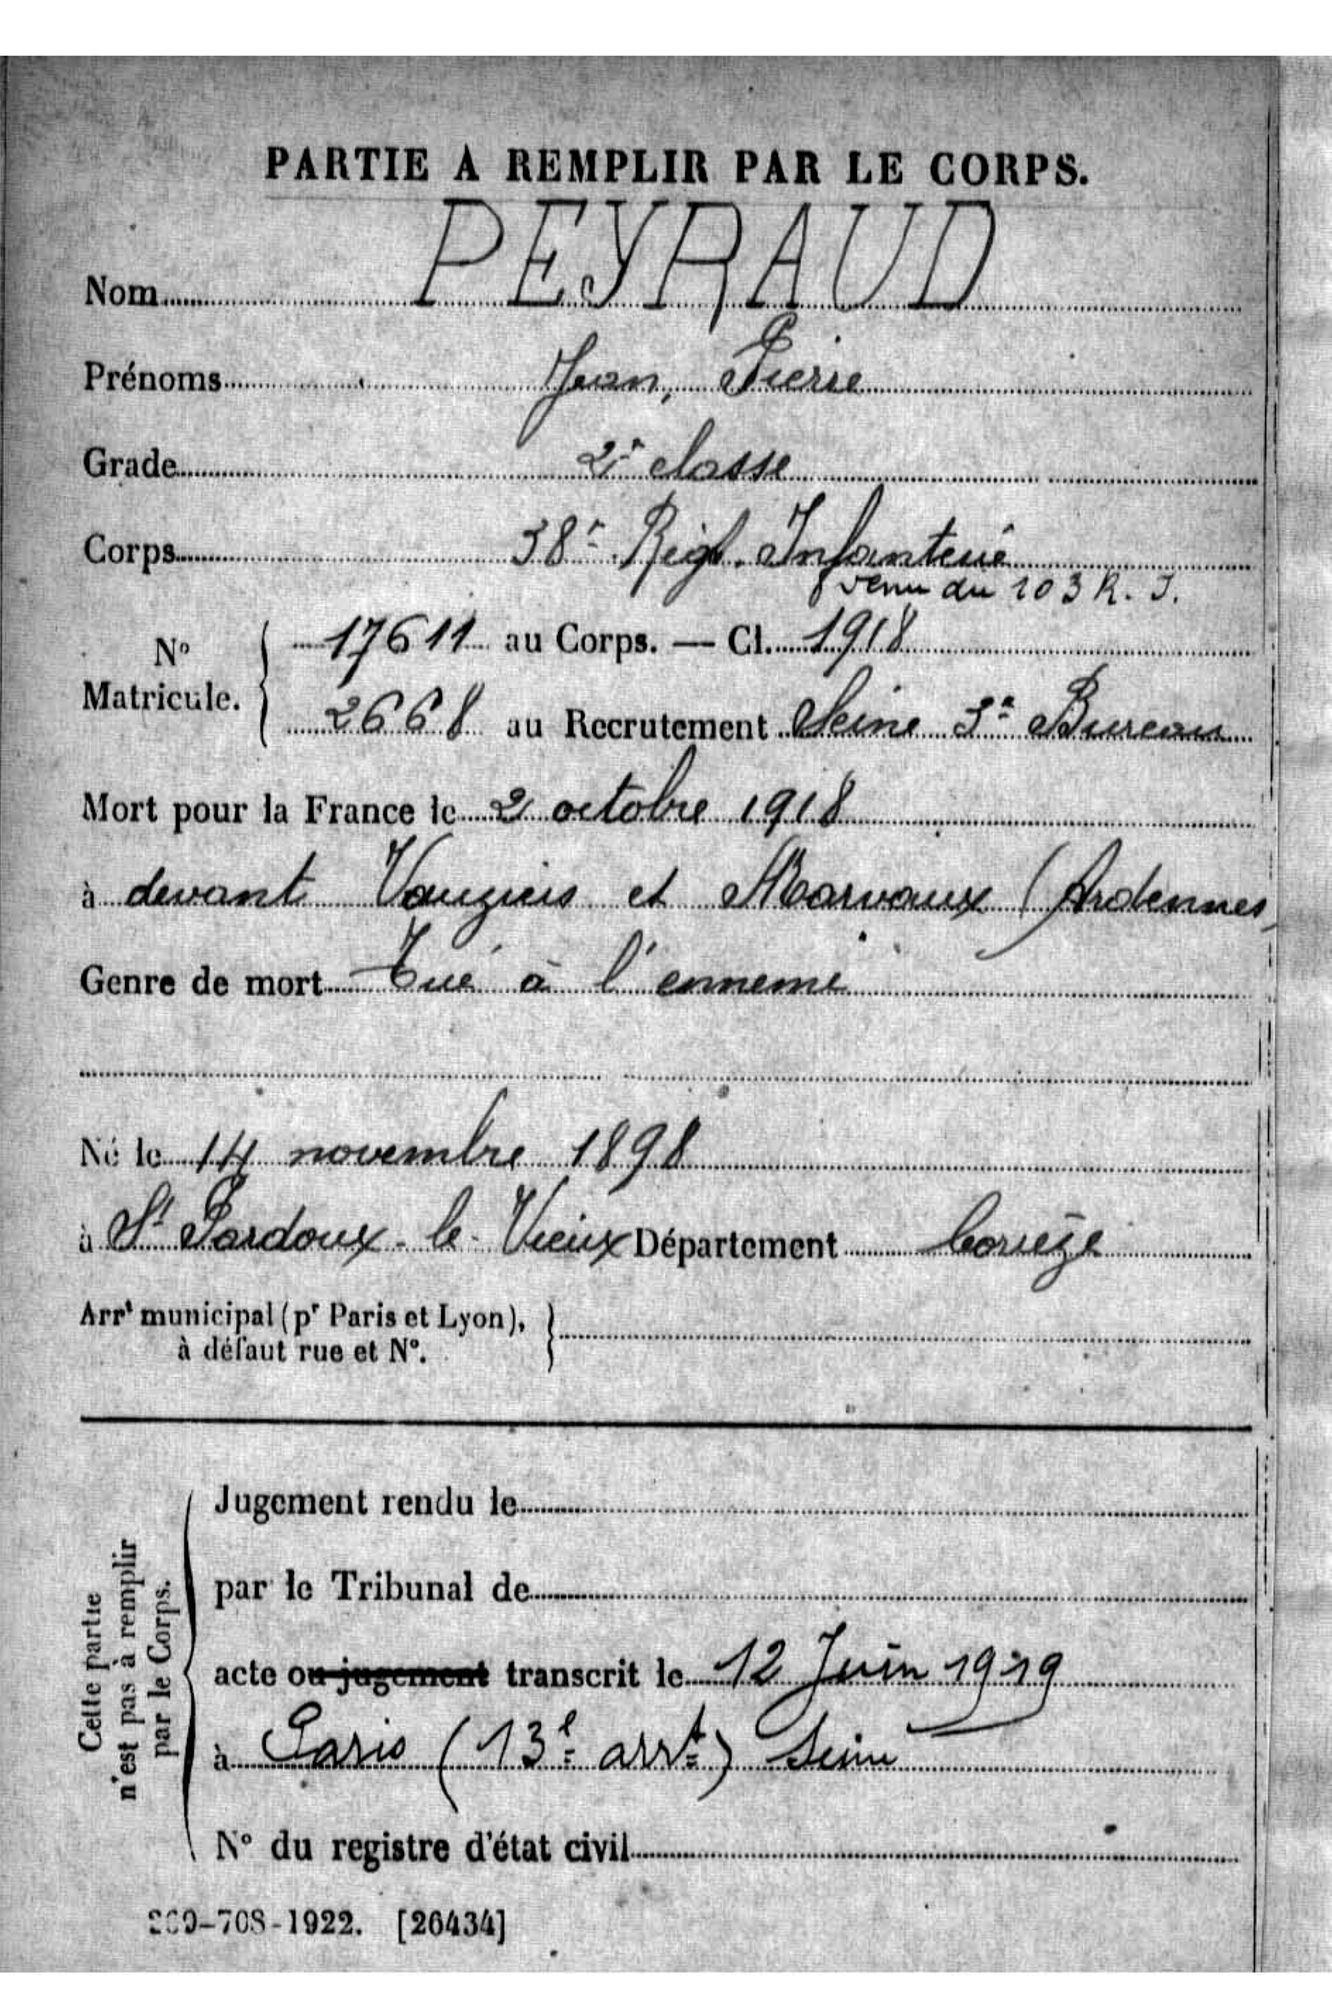 PARTIE A REMPLIR PAR LE CORPS.
Nom PEYRAUD
Prénoms Jean, Pierre
Grade 2e classe
Corps 38e Régt. Infanterie
venu du 103 R. I.
No Matricule. 17611 au Corps. — Cl. 1918
2668 au Recrutement Seine 3e Bureau
Mort pour la France le 2 octobre 1918
à devant Vouziers et Marvaux (Ardennes)
Genre de mort Tué à l'ennemi
Né le 14 novembre 1898
à St Pardoux-le-Vieux Département Corrèze
Arrt municipal (pr Paris et Lyon),
à défaut rue et No.
Cette partie
n'est pas à remplir
par le Corps.
Jugement rendu le
par le Tribunal de
acte ou jugement transcrit le 12 Juin 1919
à Paris (13e arrt) Seine
No du registre d'état civil
269-708-1922. [26434]